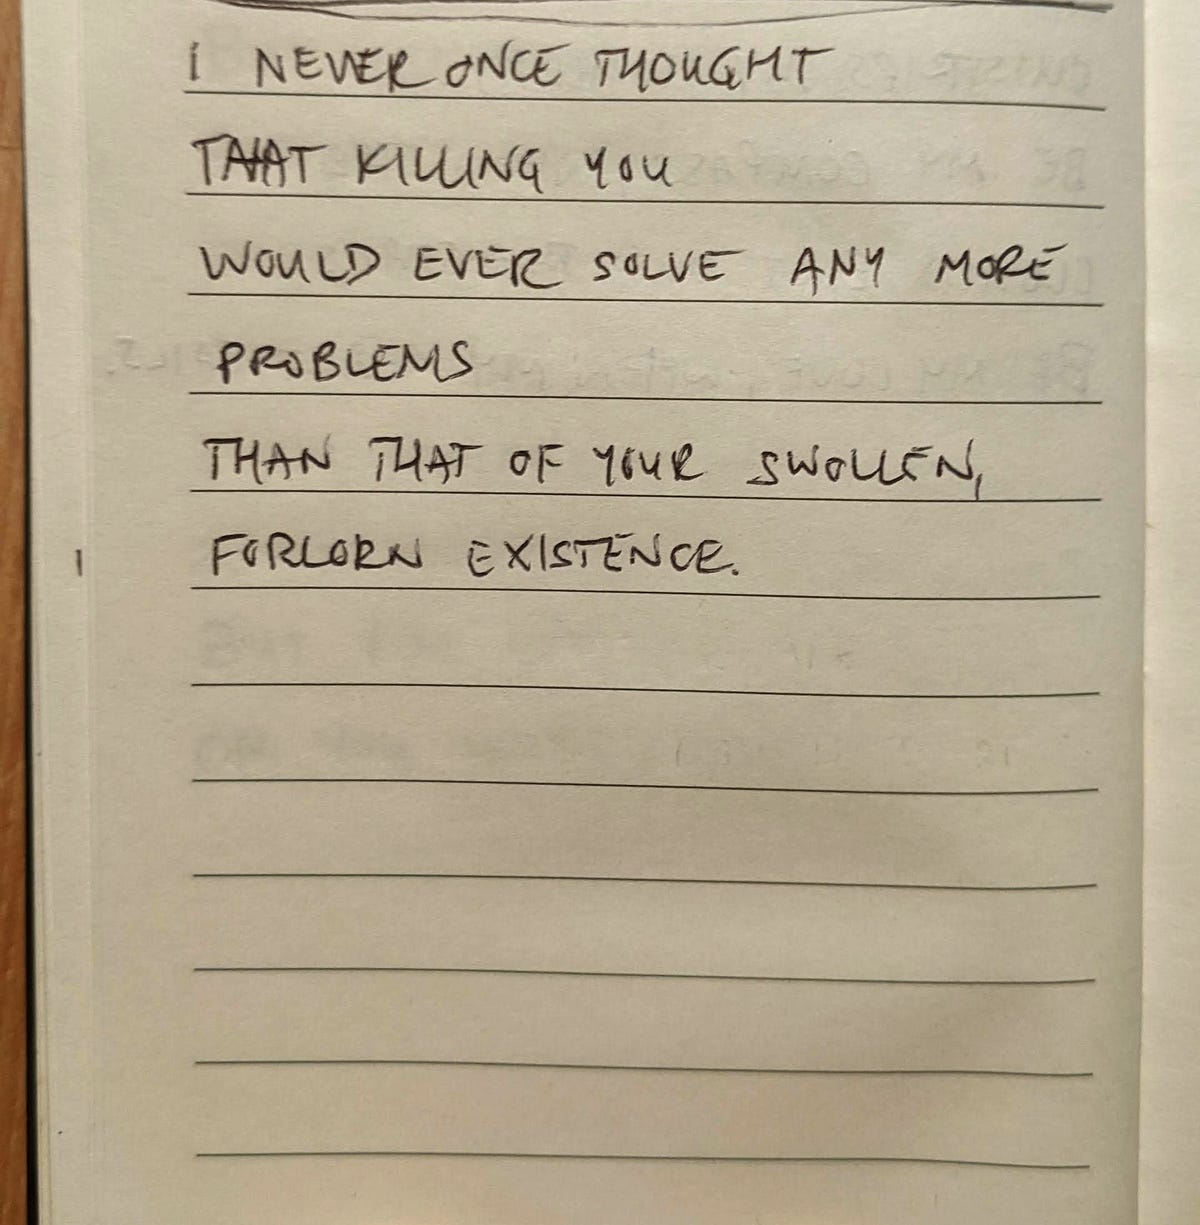 I NEVER ONCE THOUGHT
THAT KILLING YOU
WOULD EVER SOLVE ANY MORE
PROBLEMS
THAN THAT OF YOUR SWOLLEN,
FORLORN EXISTENCE.